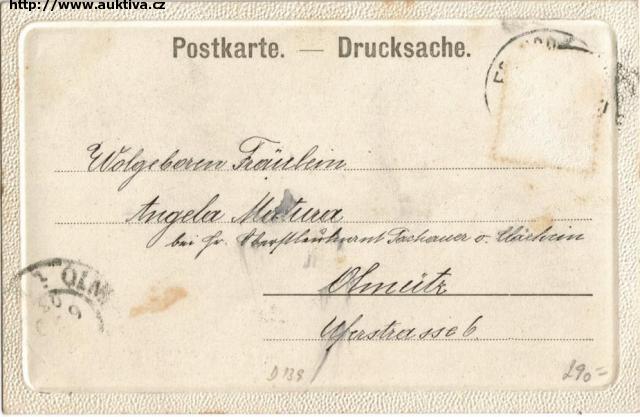 http://www.auktiva.cz
Postkarte. — Drucksache.
Wolgeboren Fräulein
Angela Matura
bei Hr. Oberstleutnant
Olmütz
Uferstrasse 6.
OLM
D 139
290=